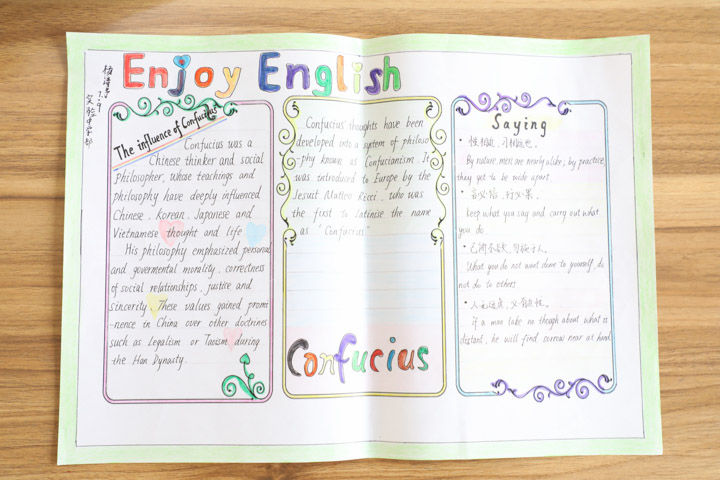 Enjoy English
7.9
The influence of Confucius
Confucius was a
Chinese thinker and social
Philosopher, whose teachings and
philosophy have deeply influenced
Chinese, Korean, Japanese and
Vietnamese thought and life.
His philosophy emphasized personal
and govermental morality, correctness
of social relationships, justice and
sincerity. These values gained promi
-nence in China over other doctrines
such as Legalism or Taoism during
the Han Dynasty.
Confucius' thoughts have been
developed into a system of philoso
-phy known as Confucianism. It
was introduced to Europe by the
Jesuit Matteo Ricci, who was
the first to Latinise the name
as "Confucius."
Confucius
Saying
· 性相近，习相远。
By nature men are nearly alike; by practice,
they get to be wide apart.
· 言必信，行必果。
keep what you say and carry out what
you do.
· 己所不欲，勿施于人。
What you do not want done to yourself, do
not do to others.
· 人无远虑，必有近忧。
if a man take no though about what is
distant, he will find sorrow near at hand.